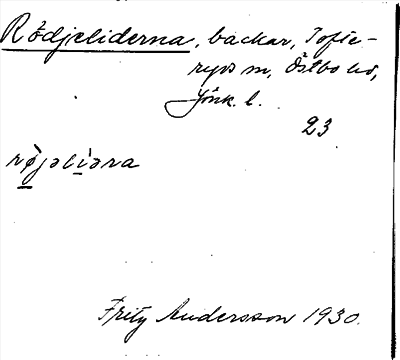 Rödjeliderna, backar, Tofte-
ryds sn, Östbo hd,
Jönk. l.
23
røjəliəra
Fritz Andersson 1930.